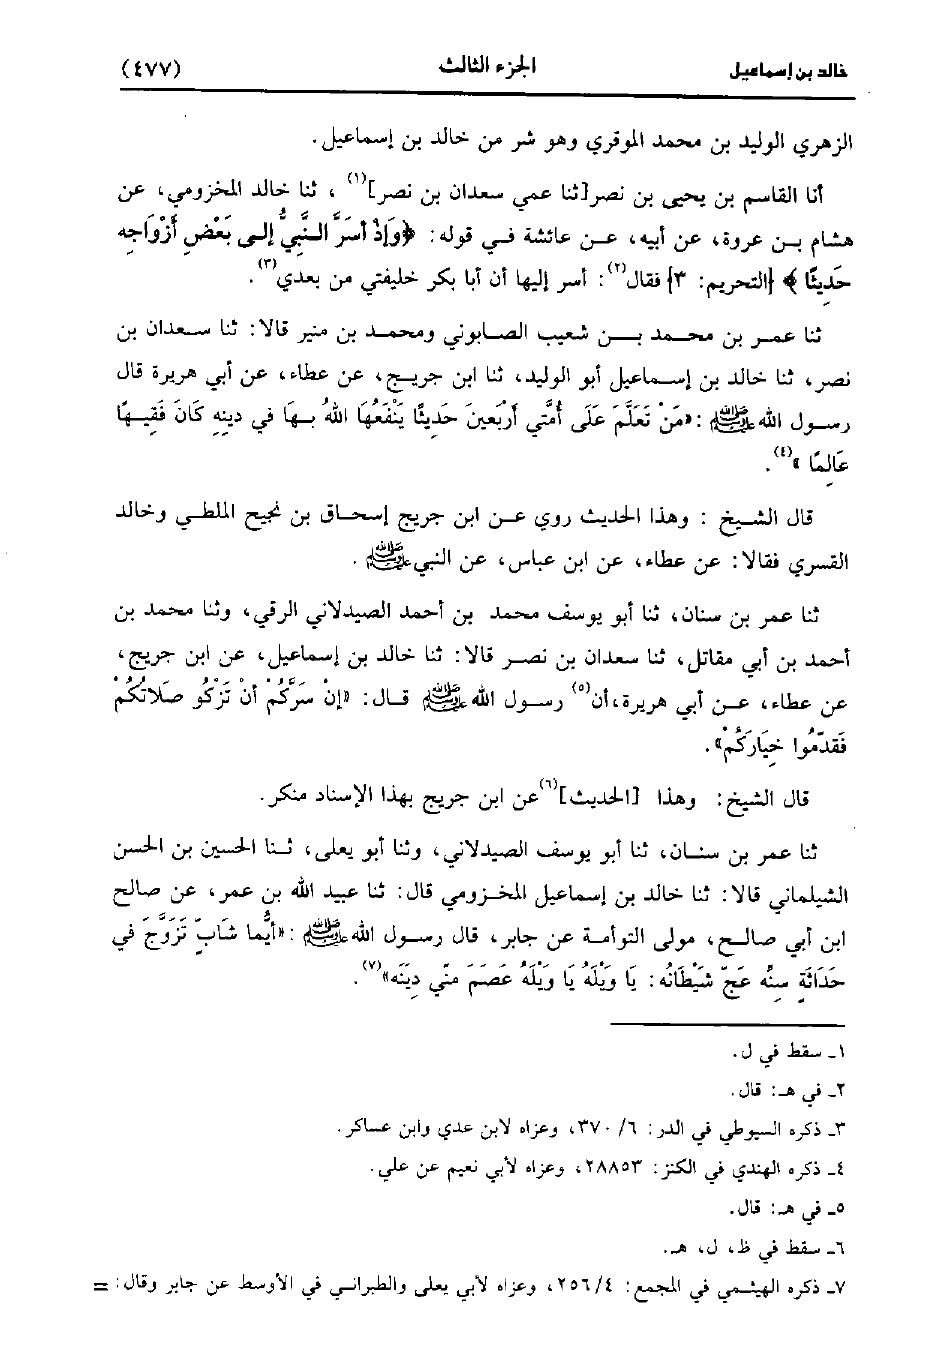 خالد بن إسماعيل الجزء الثالث (٤٧٧)
الزهري الوليد بن محمد الموقري وهو شر من خالد بن إسماعيل.
أنا القاسم بن يحيى بن نصر[ثنا عمي سعدان بن نصر](١) ، ثنا خالد المخزومي، عن
هشام بن عروة، عن أبيه، عن عائشة في قوله: ﴿وَإِذْ أَسَرَّ النَّبِيُّ إلى بَعْضِ أَزْوَاجِهِ
حَدِيثًا ﴾ [التحريم: ٣] فقال(٢): أسر إليها أن أبا بكر خليفتي من بعدي(٣).
ثنا عمر بن محمد بن شعيب الصابوني ومحمد بن منير قالا: ثنا سعدان بن
نصر، ثنا خالد بن إسماعيل أبو الوليد، ثنا ابن جريج، عن عطاء، عن أبي هريرة قال
رسول الله ﷺ :«مَنْ تَعَلَّمَ عَلَى أُمَّتِي أَرْبَعِينَ حَدِيثًا يَنْفَعُهَا اللهُ بِهَا في دِينِهِ كَانَ فَقِيهًا
عَالِمًا »(٤).
قال الشيخ : وهذا الحديث روي عن ابن جريج إسحاق بن نجيح الملطي وخالد
القسري فقالا: عن عطاء، عن ابن عباس، عن النبي ﷺ .
ثنا عمر بن سنان، ثنا أبو يوسف محمد بن أحمد الصيدلاني الرقي، وثنا محمد بن
أحمد بن أبي مقاتل، ثنا سعدان بن نصر قالا: ثنا خالد بن إسماعيل، عن ابن جريج،
عن عطاء، عن أبي هريرة،أن(٥) رسول الله ﷺ قال: «إِنْ سَرَّكُمْ أَنْ تَزْكُو صَلَاتُكُمْ
فَقَدِّمُوا خِيَارَكُمْ».
قال الشيخ: وهذا [الحديث](٦)عن ابن جريج بهذا الإسناد منكر.
ثنا عمر بن سنان، ثنا أبو يوسف الصيدلاني، وثنا أبو يعلى، ثنا الحسين بن الحسن
الشيلماني قالا: ثنا خالد بن إسماعيل المخزومي قال: ثنا عبيد الله بن عمر، عن صالح
ابن أبي صالح، مولى التوأمة عن جابر، قال رسول الله ﷺ :«أَيُّمَا شَابٍّ تَزَوَّجَ في
حَدَاثَةِ سِنِّهِ عَجَّ شَيْطَانُهُ: يَا وَيْلَهُ يَا وَيْلَهُ عَصَمَ مِنِّي دِينَهُ»(٧).
١ـ سقط في ل.
٢ـ في هـ: قال.
٣ـ ذكره السيوطي في الدر: ٦/ ٣٧٠، وعزاه لابن عدي وابن عساكر.
٤ـ ذكره الهندي في الكنز: ٢٨٨٥٣، وعزاه لأبي نعيم عن علي.
٥ـ في هـ: قال.
٦ـ سقط في ظ، ل، هـ.
٧ـ ذكره الهيثمي في المجمع: ٢٥٦/٤، وعزاه لأبي يعلى والطبراني في الأوسط عن جابر وقال: =